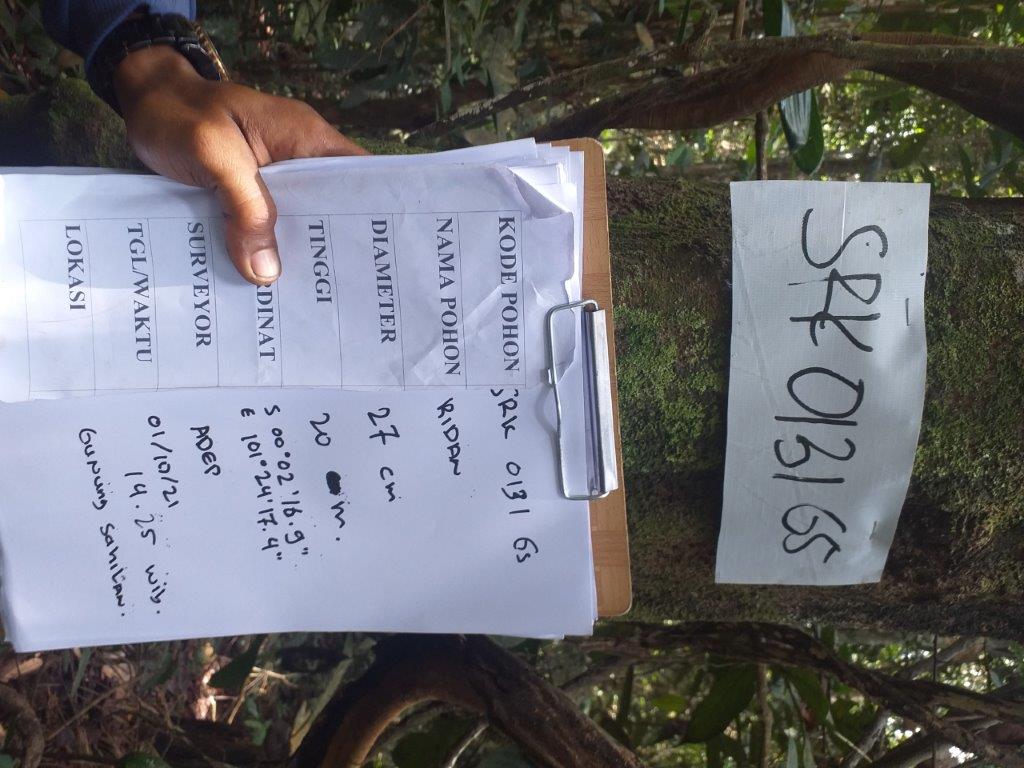 SRK 0131 GS
KODE POHON SRK 0131 GS
NAMA POHON RIDAN
DIAMETER 27 cm
TINGGI 20 m.
DINAT S 00°02'16.9"
E 101°24'17.4"
SURVEYOR ADEP
TGL/WAKTU 01/10/21
14.25 wib.
LOKASI Gunung Sahilan.